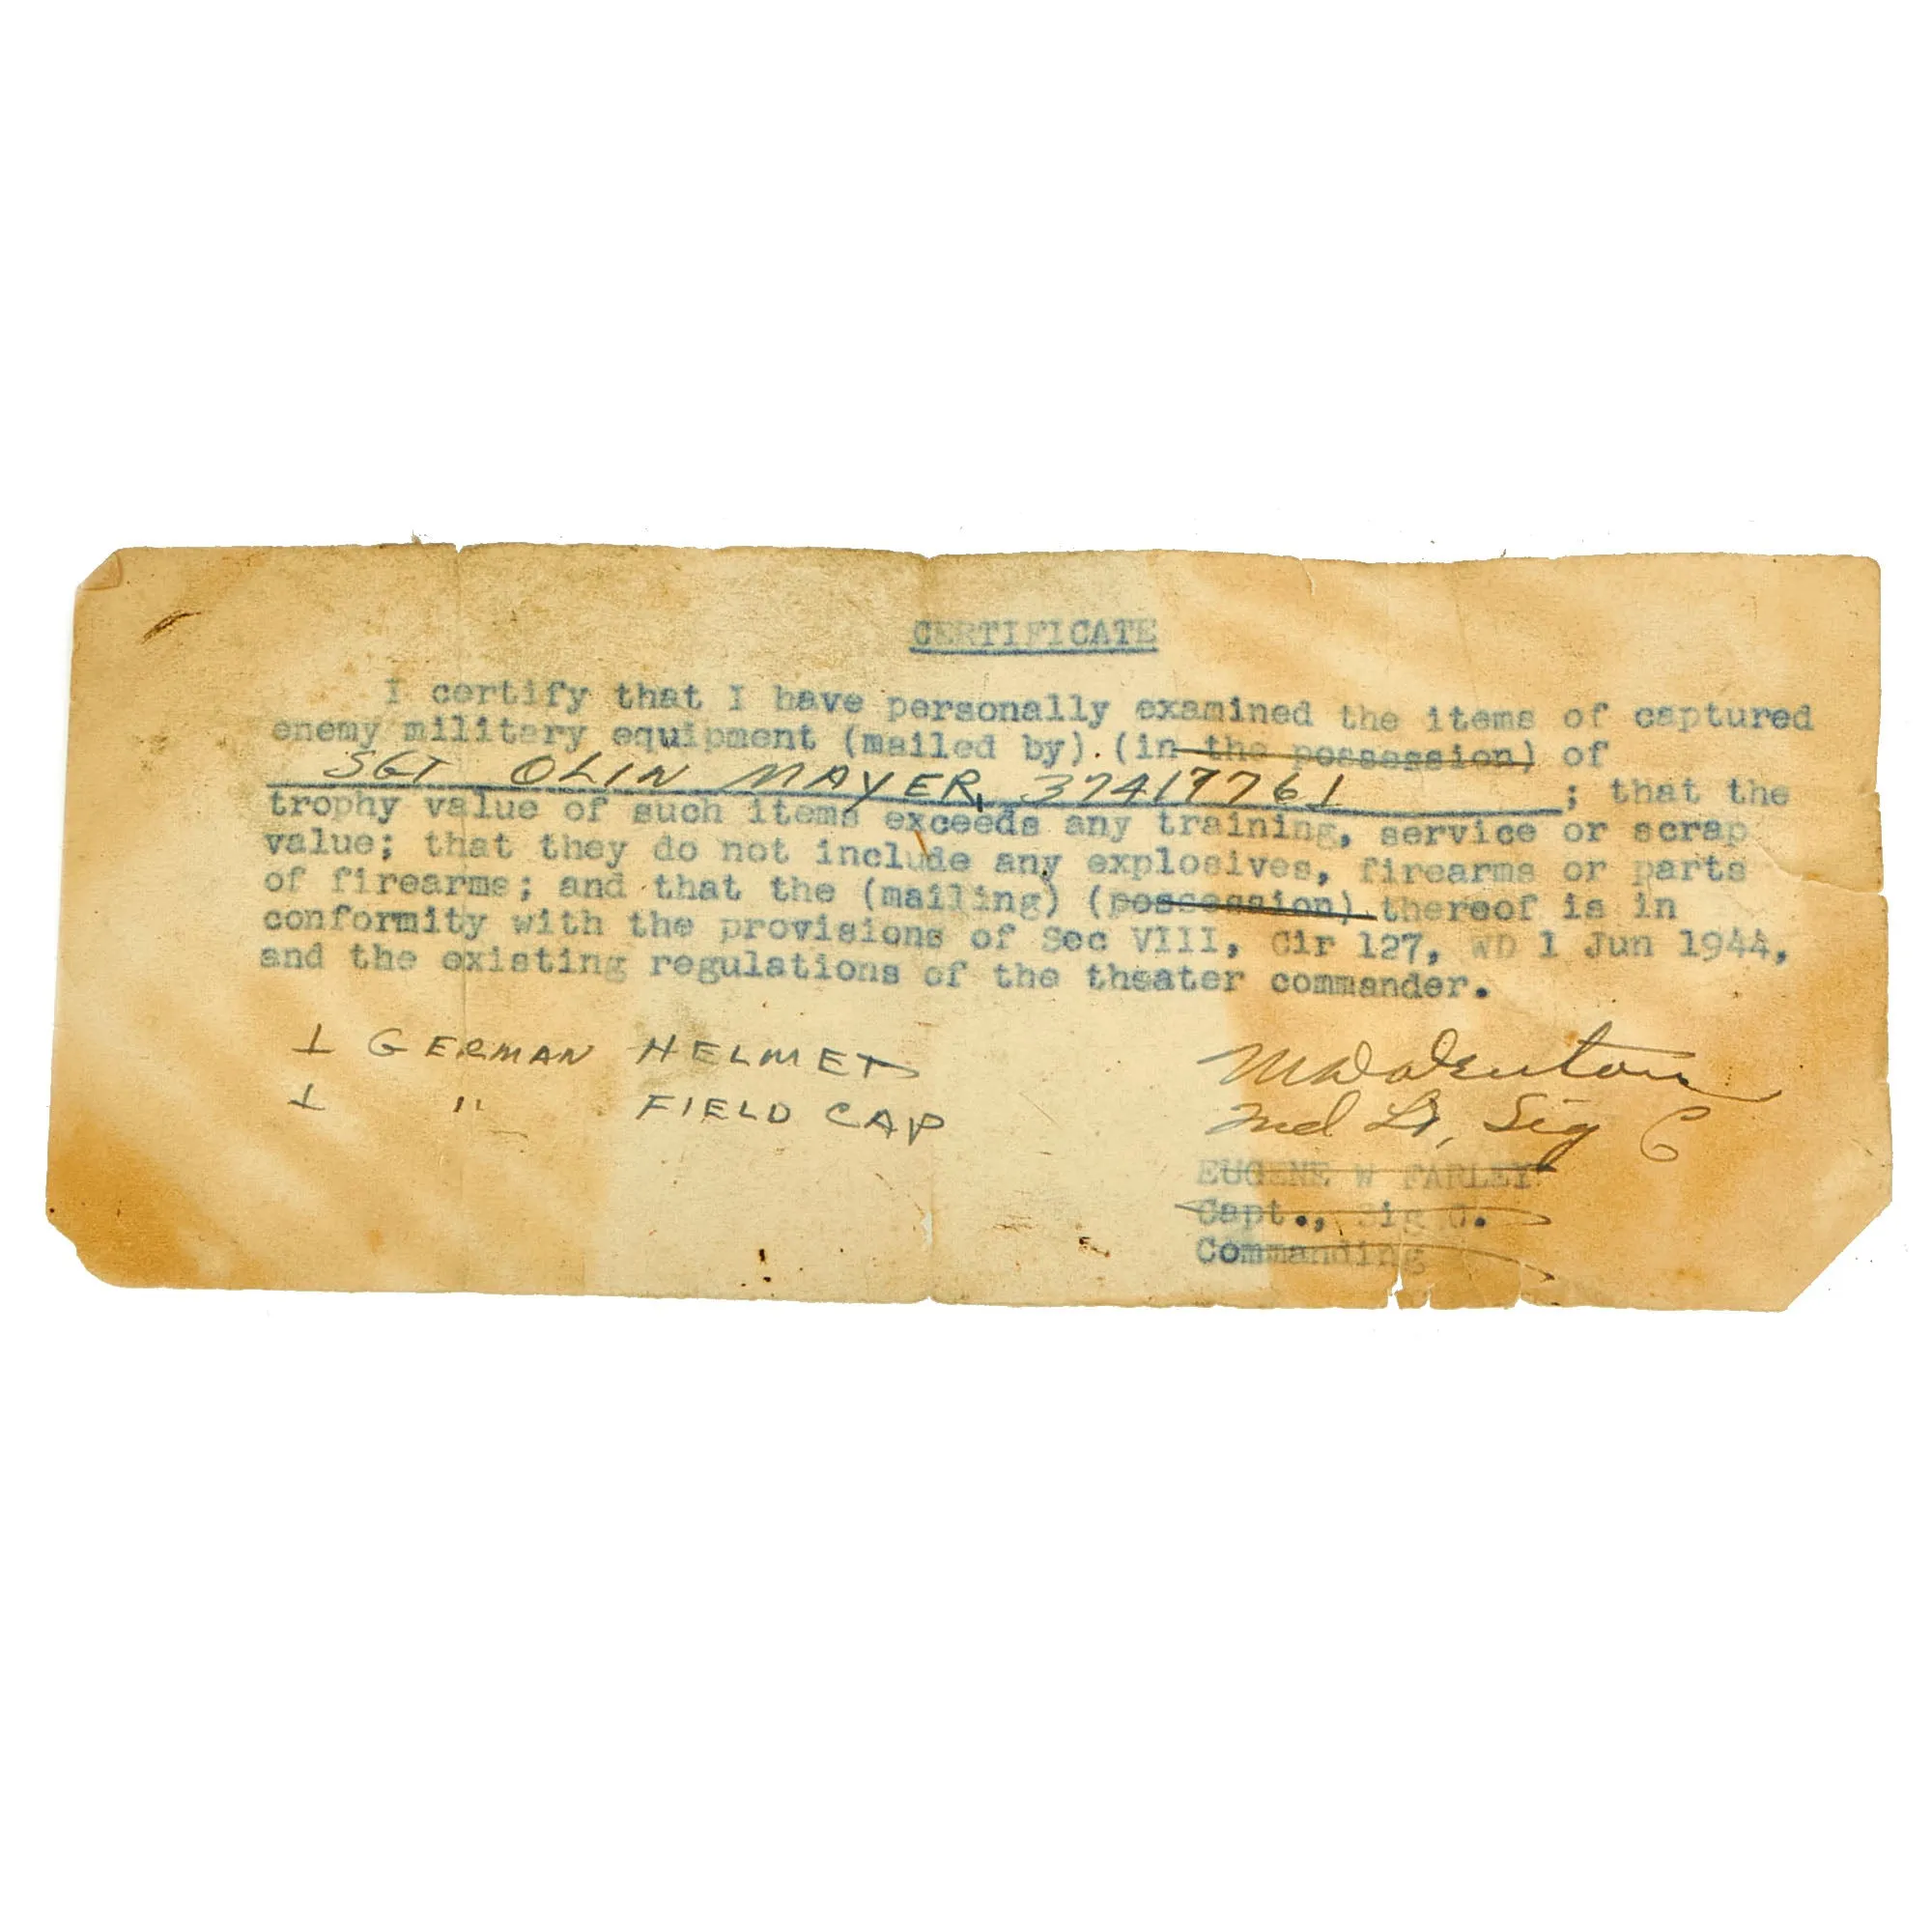 CERTIFICATE
I certify that I have personally examined the items of captured
enemy military equipment (mailed by) (in the possession) of
SGT OLIN MAYER, 37417761 ; that the
trophy value of such items exceeds any training, service or scrap
value; that they do not include any explosives, firearms or parts
of firearms; and that the (mailing) (possession) thereof is in
conformity with the provisions of Sec VIII, Cir 127, WD 1 Jun 1944,
and the existing regulations of the theater commander.
1 GERMAN HELMET
1 " FIELD CAP
2nd Lt, Sig C
EUGENE W FARLEY
Capt., Sig C.
Commanding